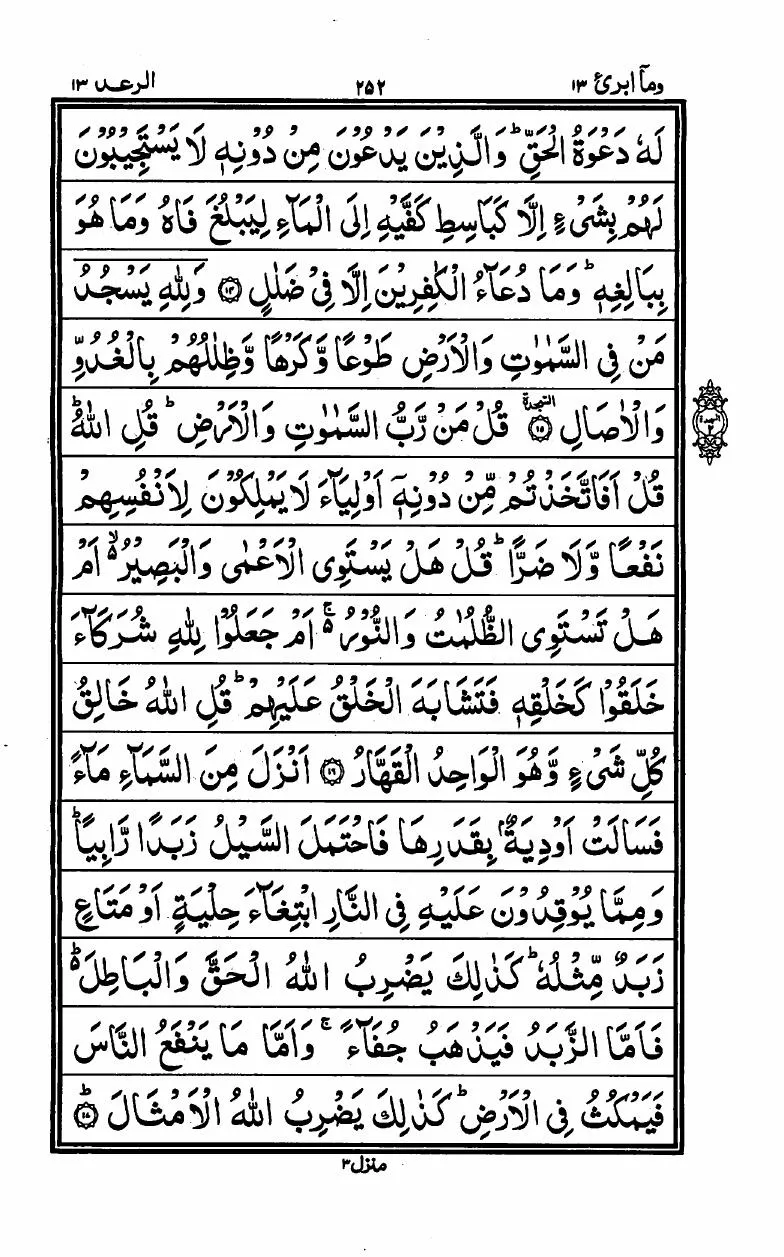 ومآ ابرئ ١٣ ٢٥٢ الرعد ١٣
لَهٗ دَعْوَةُ الْحَقِّ ؕ وَالَّذِيْنَ يَدْعُوْنَ مِنْ دُوْنِهٖ لَا يَسْتَجِيْبُوْنَ
لَهُمْ بِشَیْءٍ اِلَّا كَبَاسِطِ كَفَّيْهِ اِلَى الْمَآءِ لِيَبْلُغَ فَاهُ وَمَا هُوَ
بِبَالِغِهٖ ؕ وَمَا دُعَآءُ الْكٰفِرِيْنَ اِلَّا فِیْ ضَلٰلٍ ۝١٤ وَلِلّٰهِ يَسْجُدُ
مَنْ فِی السَّمٰوٰتِ وَالْاَرْضِ طَوْعًا وَّكَرْهًا وَّظِلٰلُهُمْ بِالْغُدُوِّ
وَالْاٰصَالِ ۝١٥ السجدة قُلْ مَنْ رَّبُّ السَّمٰوٰتِ وَالْاَرْضِ ؕ قُلِ اللّٰهُ ؕ
السجدة ٢
قُلْ اَفَاتَّخَذْتُمْ مِّنْ دُوْنِهٖۤ اَوْلِيَآءَ لَا يَمْلِكُوْنَ لِاَنْفُسِهِمْ
نَفْعًا وَّلَا ضَرًّا ؕ قُلْ هَلْ يَسْتَوِی الْاَعْمٰى وَالْبَصِيْرُ ۙ۬ اَمْ
هَلْ تَسْتَوِی الظُّلُمٰتُ وَالنُّوْرُ ۬ۚ اَمْ جَعَلُوْا لِلّٰهِ شُرَكَآءَ
خَلَقُوْا كَخَلْقِهٖ فَتَشَابَهَ الْخَلْقُ عَلَيْهِمْ ؕ قُلِ اللّٰهُ خَالِقُ
كُلِّ شَیْءٍ وَّهُوَ الْوَاحِدُ الْقَهَّارُ ۝١٦ اَنْزَلَ مِنَ السَّمَآءِ مَآءً
فَسَالَتْ اَوْدِيَةٌۢ بِقَدَرِهَا فَاحْتَمَلَ السَّيْلُ زَبَدًا رَّابِيًا ؕ
وَمِمَّا يُوْقِدُوْنَ عَلَيْهِ فِی النَّارِ ابْتِغَآءَ حِلْيَةٍ اَوْ مَتَاعٍ
زَبَدٌ مِّثْلُهٗ ؕ كَذٰلِكَ يَضْرِبُ اللّٰهُ الْحَقَّ وَالْبَاطِلَ ؕ۬
فَاَمَّا الزَّبَدُ فَيَذْهَبُ جُفَآءً ۚ وَاَمَّا مَا يَنْفَعُ النَّاسَ
فَيَمْكُثُ فِی الْاَرْضِ ؕ كَذٰلِكَ يَضْرِبُ اللّٰهُ الْاَمْثَالَ ؕ۝١٧
منزل ٣